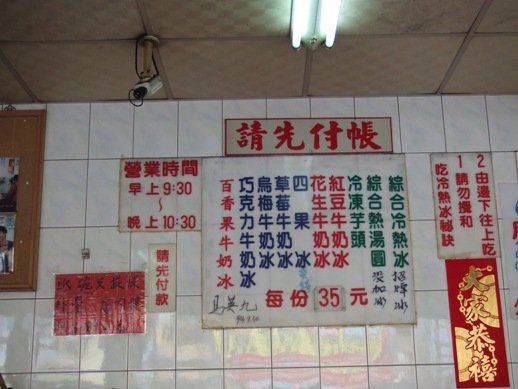 請先付帳
營業時間
早上9:30
~
晚上10:30
請先付款
綜合冷熱冰
招牌冰
綜合熱湯圓
冷凍芋頭
紅豆牛奶冰
花生牛奶冰
四果冰
草莓牛奶冰
烏梅牛奶冰
巧克力牛奶冰
百香果牛奶冰
每份35元
馬英九
2由邊下往上吃
1請勿攪和
吃冷熱冰祕訣
大家恭禧